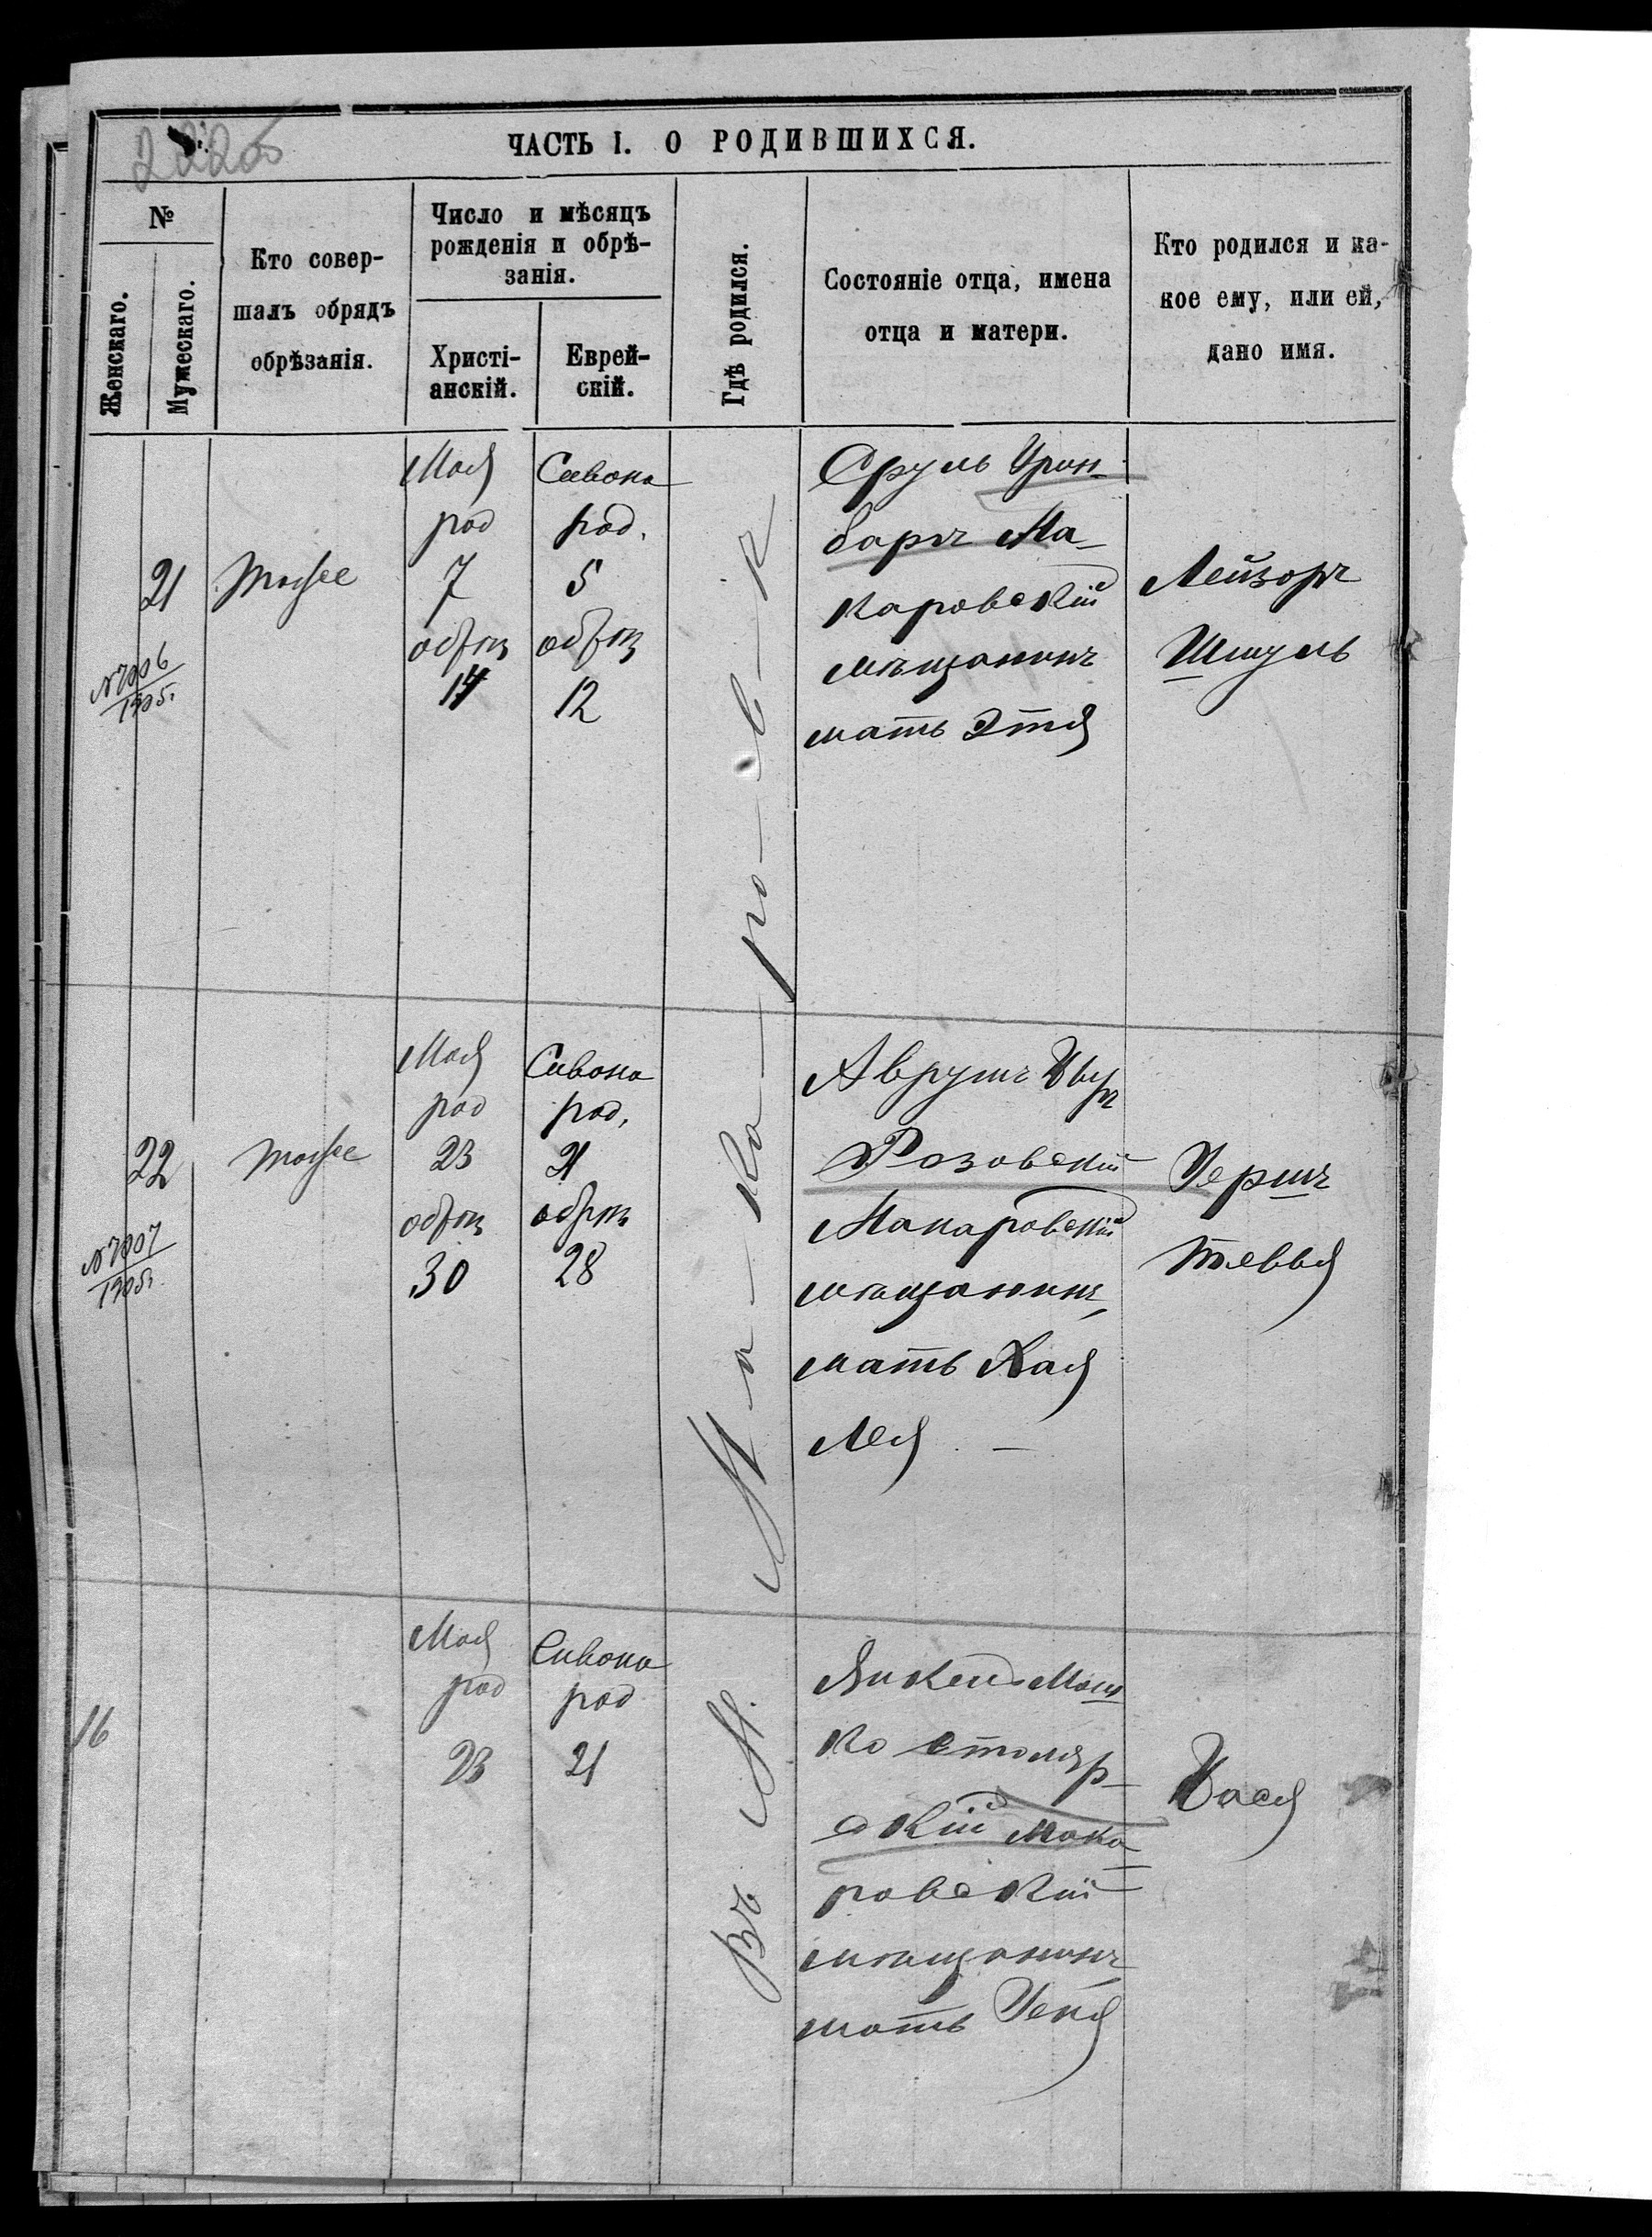 222об
ЧАСТЬ I. О РОДИВШИХСЯ.
№
Женскаго.
Мужескаго.
Кто совер-
шалъ обрядъ
обрѣзанія.
Число и мѣсяцъ
рожденія и обрѣ-
занія.
Христі-
анскій.
Еврей-
скій.
Гдѣ родился.
Состояніе отца, имена
отца и матери.
Кто родился и ка-
кое ему, или ей,
дано имя.
21
№7006
1905г.
тоже
Мая
род
7
обрѣз
14
Сивона
род.
5
обрѣз
12
Въ М. Ма-ка-ро-в-ѣ
Сруль Грин-
баръ Ма-
каровскій
мѣщанинъ
мать Этя
Лейзоръ
Шмуль
22
№7007
1905г.
тоже
Мая
род
23
обрѣз
30
Сивона
род.
21
обрѣз
28
Аврумъ
Розовскій
Макаровскій
мѣщанинъ,
мать Хая
Лея –
Гершъ
Тевья
16
Мая
род
23
Сивона
род
21
Янкель Мош
ко Столяр-
скій Мака-
ровскій
мѣщанинъ
мать Геня
Хася